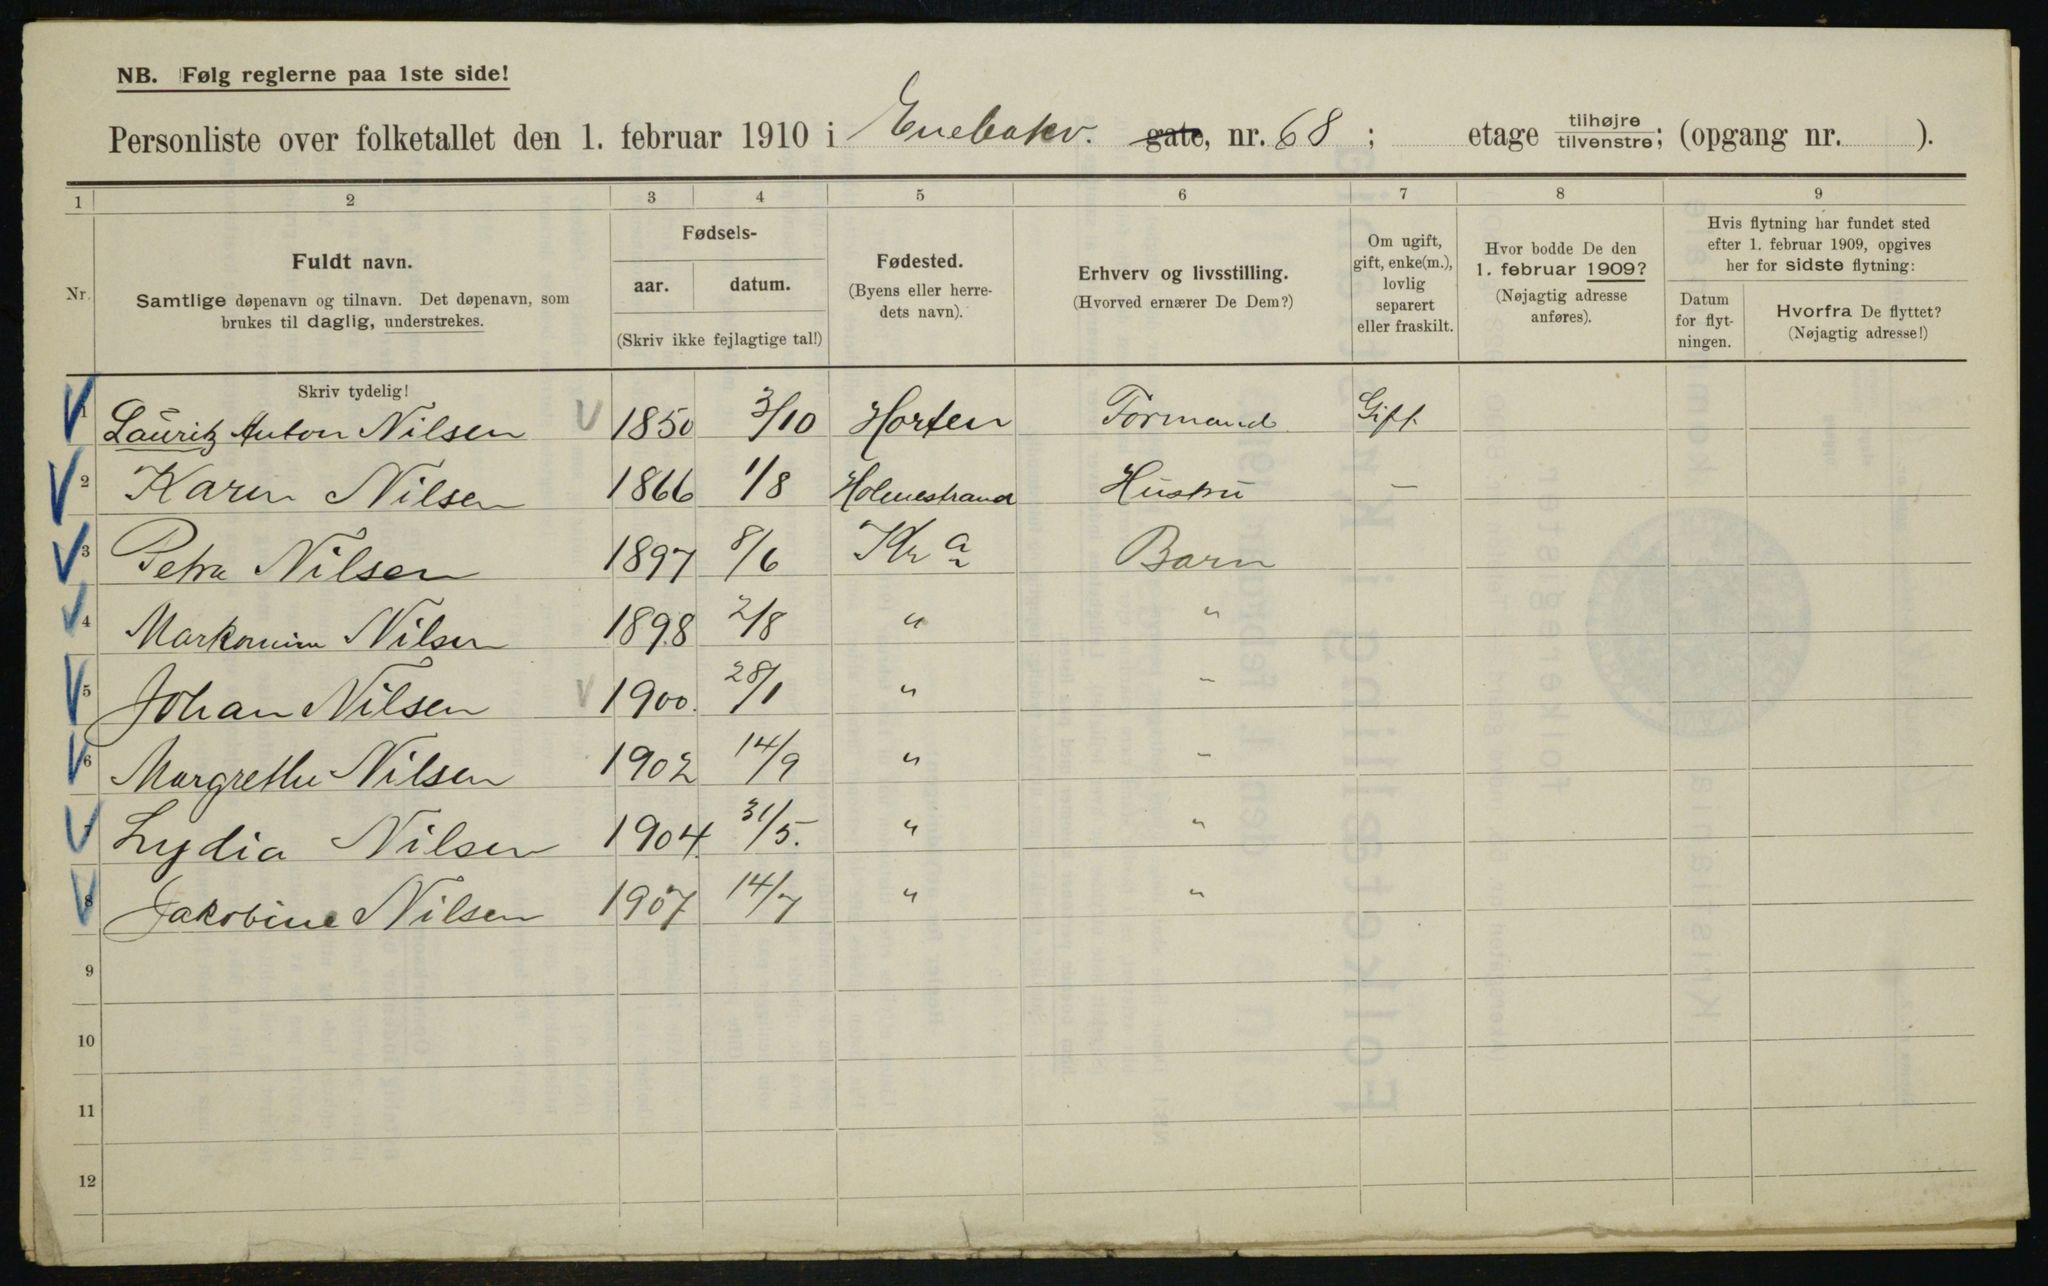 NB. Følg reglerne paa 1ste side!
Personliste over folketallet den 1. februar 1910 i Enebakv. gate, nr. 68 ; etage tilhøjre/tilvenstre; (opgang nr. ).
1 2 3 4 5 6 7 8 9
Nr.
Fuldt navn.
Samtlige døpenavn og tilnavn. Det døpenavn, som
brukes til daglig, understrekes.
Fødsels-
aar. datum.
(Skriv ikke fejlagtige tal!)
Fødested.
(Byens eller herre-
dets navn).
Erhverv og livsstilling.
(Hvorved ernærer De Dem?)
Om ugift,
gift, enke(m.),
lovlig
separert
eller fraskilt.
Hvor bodde De den
1. februar 1909?
(Nøjagtig adresse
anføres).
Hvis flytning har fundet sted
efter 1. februar 1909, opgives
her for sidste flytning:
Datum
for flyt-
ningen.
Hvorfra De flyttet?
(Nøjagtig adresse!)
Skriv tydelig!
1 Lauritz Anton Nilsen 1850 3/10 Horten Formand Gift
2 Karen Nilsen 1866 1/8 Holmestrand Hustru –
3 Petra Nilsen 1897 8/6 Kr a Barn
4 Nilsen 1898 2/8 " "
5 Johan Nilsen 1900 28/1 " "
6 Margrethe Nilsen 1902 14/9 " "
7 Lydia Nilsen 1904. 31/5. " "
8 Jakobine Nilsen 1907 14/7 " "
9
10
11
12